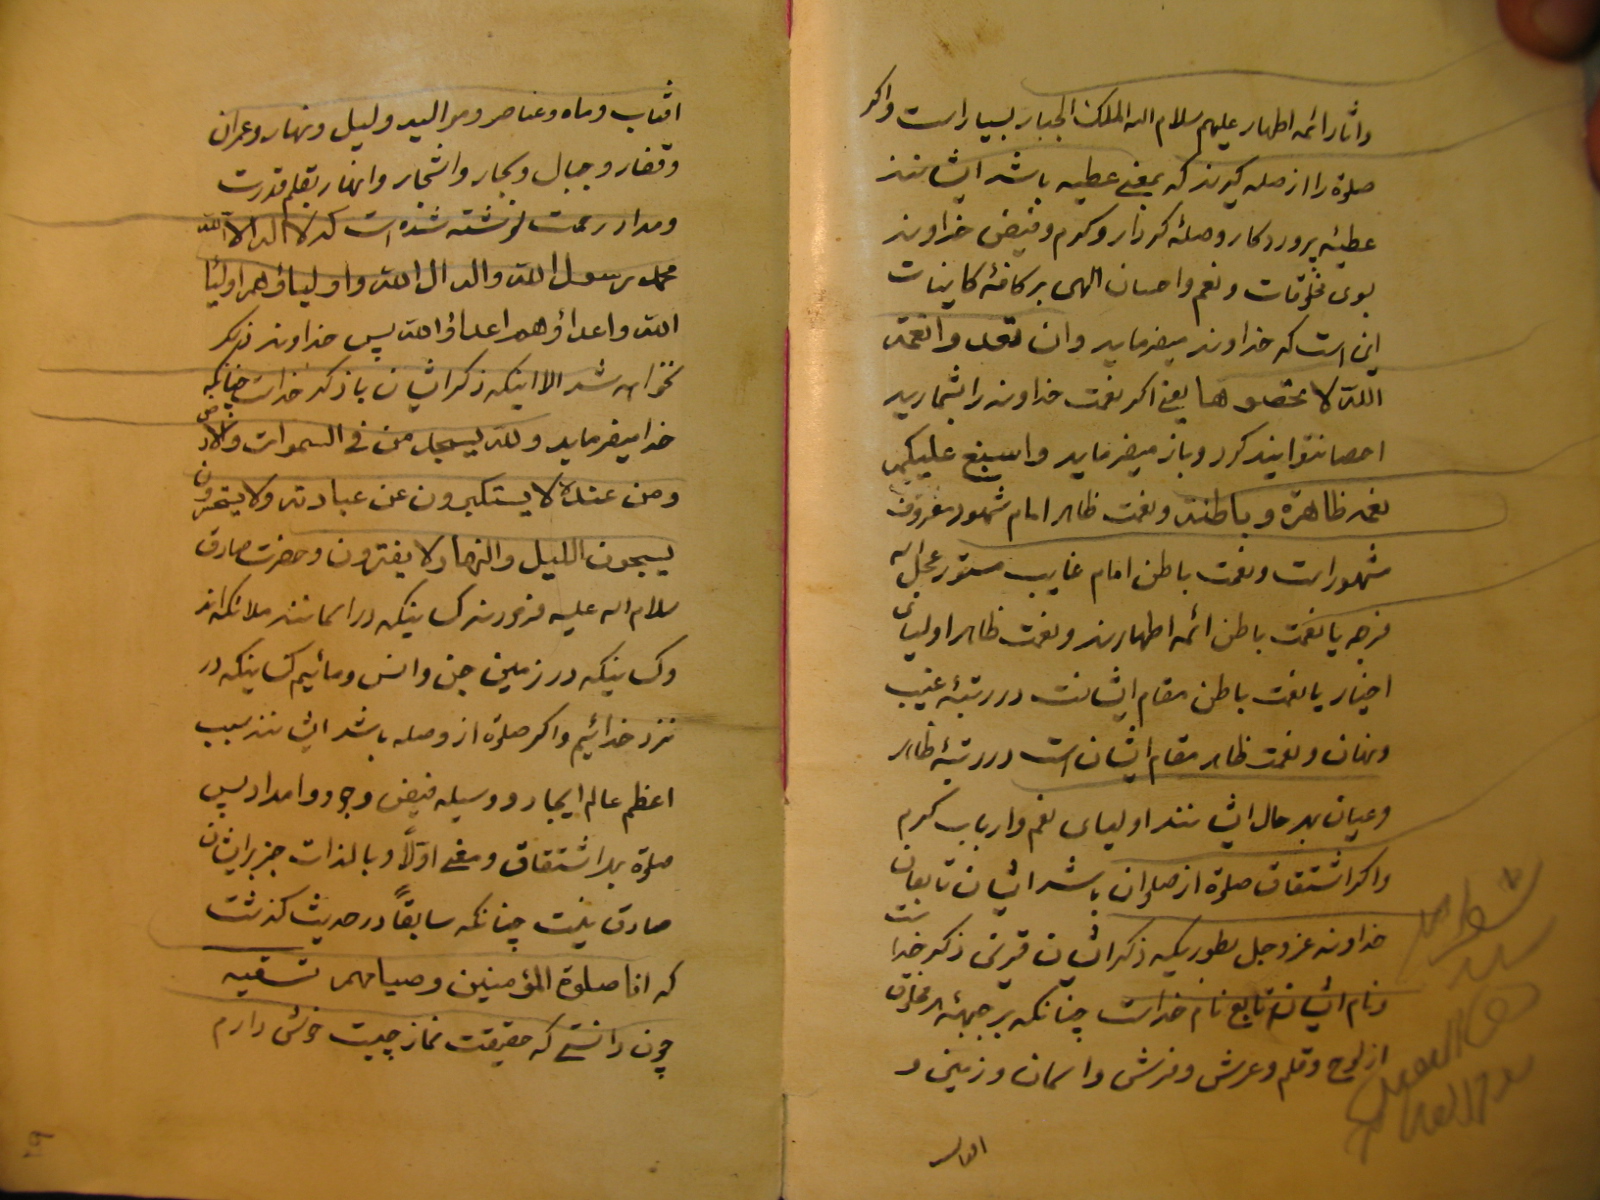 واثار ائمه اطهار علیهم سلام الله الملک الجبار بسیار است واکر
صلوة را از صله کیرند که بمعنی عطیه باشد ایشانند
عطیّه پروردکار وصلهٔ کردار وکرم وفیض خداوند
بوی مخلوقات ونعم واحسان الهی بر کافهٔ کاینات
این است که خداوند میفرماید وان تعدوا نعمة
الله لا تحصوها یعنی اکر نعمت خداوند را شمارید
احصا نتوانید کرد وباز میفرماید واسبغ علیکم
نعمه ظاهرة وباطنة ونعمت ظاهر امام شهود معروف
مشهور است ونعمت باطن امام غایب مستور عجل الله
فرجه یا نعمت باطن ائمه اطهارند ونعمت ظاهر اولیای
اخیار یا نعمت باطن مقام ایشانست در رتبهٔ غیب
ونهان ونعمت ظاهر مقام ایشان است در رتبهٔ ظاهر
وعیان بهر حال ایشانند اولیای نعم وارباب کرم
واکر اشتقاق صلوة از صلوان باشد ایشان تابعان
خداوند عزوجل بطوریکه ذکر ایشان قرین ذکر خدا
ونام ایشان تابع نام خداست چنانکه بر جبههٔ هر مخلوق
از لوح وقلم وعرش وفرش واسمان وزمین و
افتاب وماه وعناصر وموالید ولیل ونهار وعمران
وقفار وجبال وبحار واشجار وانهار بقلم قدرت
ومداد رحمت نوشته شده است که لا اله الا الله
محمد رسول الله واله ال الله واولیاؤهم اولیا
الله واعداؤهم اعداؤ الله پس خداوند ذکر
نخواسته شد الا اینکه ذکر ایشان با ذکر خداست چنانکه
خدا میفرماید ولله یسجد من فی السموات والارض
ومن عنده لا یستکبرون عن عبادته ولا یستحسرون
یسبحون اللیل والنهار لا یفترون وحضرت صادق
سلام الله علیه فرمودند کسانیکه در اسمانند ملائکه اند
وکسانیکه در زمین جن وانس ومائیم کسانیکه در
نزد خدائیم واکر صلوة از وصله باشد ایشانند سبب
اعظم عالم ایجاد ووسیله فیض وجود وامداد پس
صلوة بهر اشتقاق ومعنی اولاً وبالذات جز بر ایشان
صادق نیست چنانکه سابقاً در حدیث کذشت
که انا صلوة المؤمنین وصیامهم تنبیه
چون دانستی که حقیقت نماز چیست خوش دارم